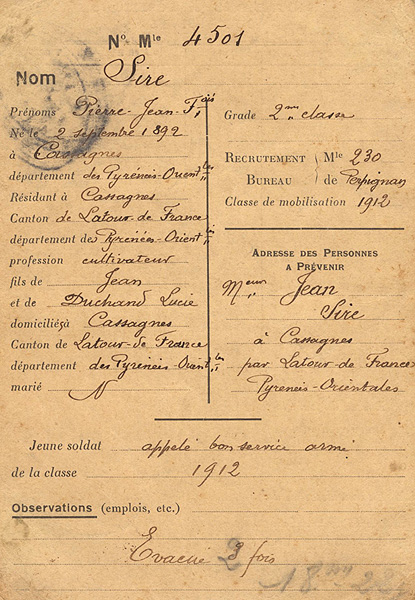 Nº Mle 4501
Nom Sire
Prénoms Pierre-Jean-Fçois
Né le 2 septembre 1892
à Cassagnes
département des Pyrenées-Orientles
Résidant à Cassagnes
Canton de Latour de France
département des Pyrenées-Orientles
profession cultivateur
fils de Jean
et de Duchand Lucie
domiciliés à Cassagnes
Canton de Latour-de France
département des Pyrenées Orientles
marié N
Grade 2me classe
RECRUTEMENT Mle 230
BUREAU de Perpignan
Classe de mobilisation 1912
ADRESSE DES PERSONNES
A PRÉVENIR
Mieur Jean
Sire
à Cassagnes
par Latour-de France
Pyreneés-Orientales
Jeune soldat appelé bon service armé
de la classe 1912
Observations (emplois, etc.)
Evacué 2 fois